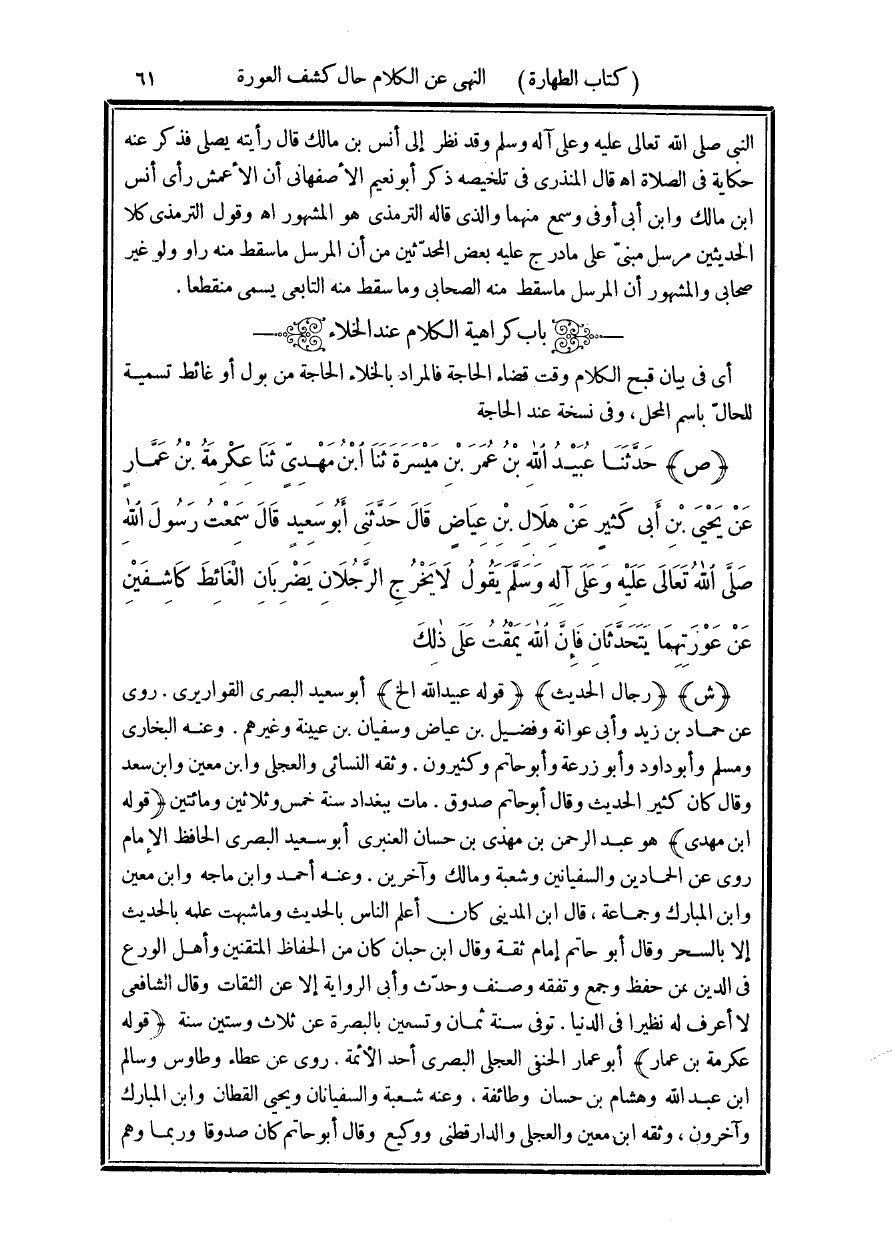 ( كتاب الطهارة ) النهى عن الكلام حال كشف العورة ٦١
النبى صلى الله تعالى عليه وعلى آله وسلم وقد نظر إلى أنس بن مالك قال رأيته يصلى فذكر عنه
حكاية فى الصلاة اه قال المنذرى فى تلخيصه ذكر أبو نعيم الأصفهانى أن الأعمش رأى أنس
ابن مالك وابن أبى أوفى وسمع منهما والذى قاله الترمذى هو المشهور اه وقول الترمذى كلا
الحديثين مرسل مبنىّ على مادرج عليه بعض المحدّثين من أن المرسل ماسقط منه راو ولو غير
صحابى والمشهور أن المرسل ماسقط منه الصحابى وما سقط منه التابعى يسمى منقطعا .
باب كراهية الكلام عند الخلاء
أى فى بيان قبح الكلام وقت قضاء الحاجة فالمراد بالخلاء الحاجة من بول أو غائط تسمية
للحالّ باسم المحل ، وفى نسخة عند الحاجة
﴿ص﴾ حَدَّثَنَا عُبَيْدُ اللهِ بْنُ عُمَرَ بنِ مَيْسَرَةَ ثَنَا ابْنُ مَهْدِىٍّ ثَنَا عِكْرِمَةُ بْنُ عَمَّارٍ
عَنْ يَحْيَى بْنِ أَبى كَثِيرٍ عَنْ هِلَالِ بْنِ عِيَاضٍ قَالَ حَدَّثَنِى أَبُو سَعِيدٍ قَالَ سَمِعْتُ رَسُولَ اللهِ
صَلَّى اللهُ تَعَالَى عَلَيْهِ وَعَلَى آلِهِ وَسَلَّمَ يَقُولُ لَايَخْرُجِ الرَّجُلَانِ يَضْرِبَانِ الْغَائِطَ كَاشِفَيْنِ
عَنْ عَوْرَتِهِمَا يَتَحَدَّثَانِ فَإِنَّ اللهَ يَمْقُتُ عَلَى ذٰلِكَ
﴿ش﴾ ﴿رجال الحديث﴾ ﴿قوله عبيدالله الخ﴾ أبو سعيد البصرى القواريرى . روى
عن حماد بن زيد وأبى عوانة وفضيل بن عياض وسفيان بن عيينة وغيرهم . وعنه البخارى
ومسلم وأبوداود وأبو زرعة وأبوحاتم وكثيرون . وثقه النسائى والعجلى وابن معين وابن سعد
وقال كان كثير الحديث وقال أبوحاتم صدوق . مات ببغداد سنة خمس وثلاثين ومائتين ﴿قوله
ابن مهدى﴾ هو عبد الرحمن بن مهدى بن حسان العنبرى أبو سعيد البصرى الحافظ الإمام
روى عن الحمادين والسفيانين وشعبة ومالك وآخرين . وعنه أحمد وابن ماجه وابن معين
وابن المبارك وجماعة ، قال ابن المدينى كان أعلم الناس بالحديث وماشبهت علمه بالحديث
إلا بالسحر وقال أبو حاتم إمام ثقة وقال ابن حبان كان من الحفاظ المتقنين وأهل الورع
فى الدين ممن حفظ وجمع وتفقه وصنف وحدّث وأبى الرواية إلا عن الثقات وقال الشافعى
لا أعرف له نظيرا فى الدنيا . توفى سنة ثمان وتسعين بالبصرة عن ثلاث وستين سنة ﴿قوله
عكرمة بن عمار﴾ أبوعمار الحنفى العجلى البصرى أحد الأئمة . روى عن عطاء وطاوس وسالم
ابن عبد الله وهشام بن حسان وطائفة ، وعنه شعبة والسفيانان ويحيى القطان وابن المبارك
وآخرون ، وثقه ابن معين والعجلى والدارقطنى ووكيع وقال أبوحاتم كان صدوقا وربما وهم